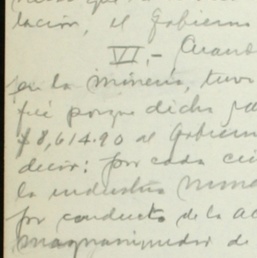 lación, el Gobierno
VI.- Cuand
en la minería, tuvi
fué porque dicha
$8,614.90 al Gobiern
decir: por cada ci
la industria
por conducto de la
de